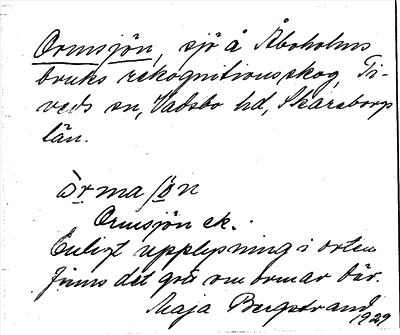 Ormsjön, sjö å Åboholms
bruks rekognitionsskog, Ti-
veds sn, Vadsbo hd, Skaraborgs
län.
Ormsjön ek.
Enligt upplysning i orten
finns det gott om ormar där.
Maja Bergstrand
1929